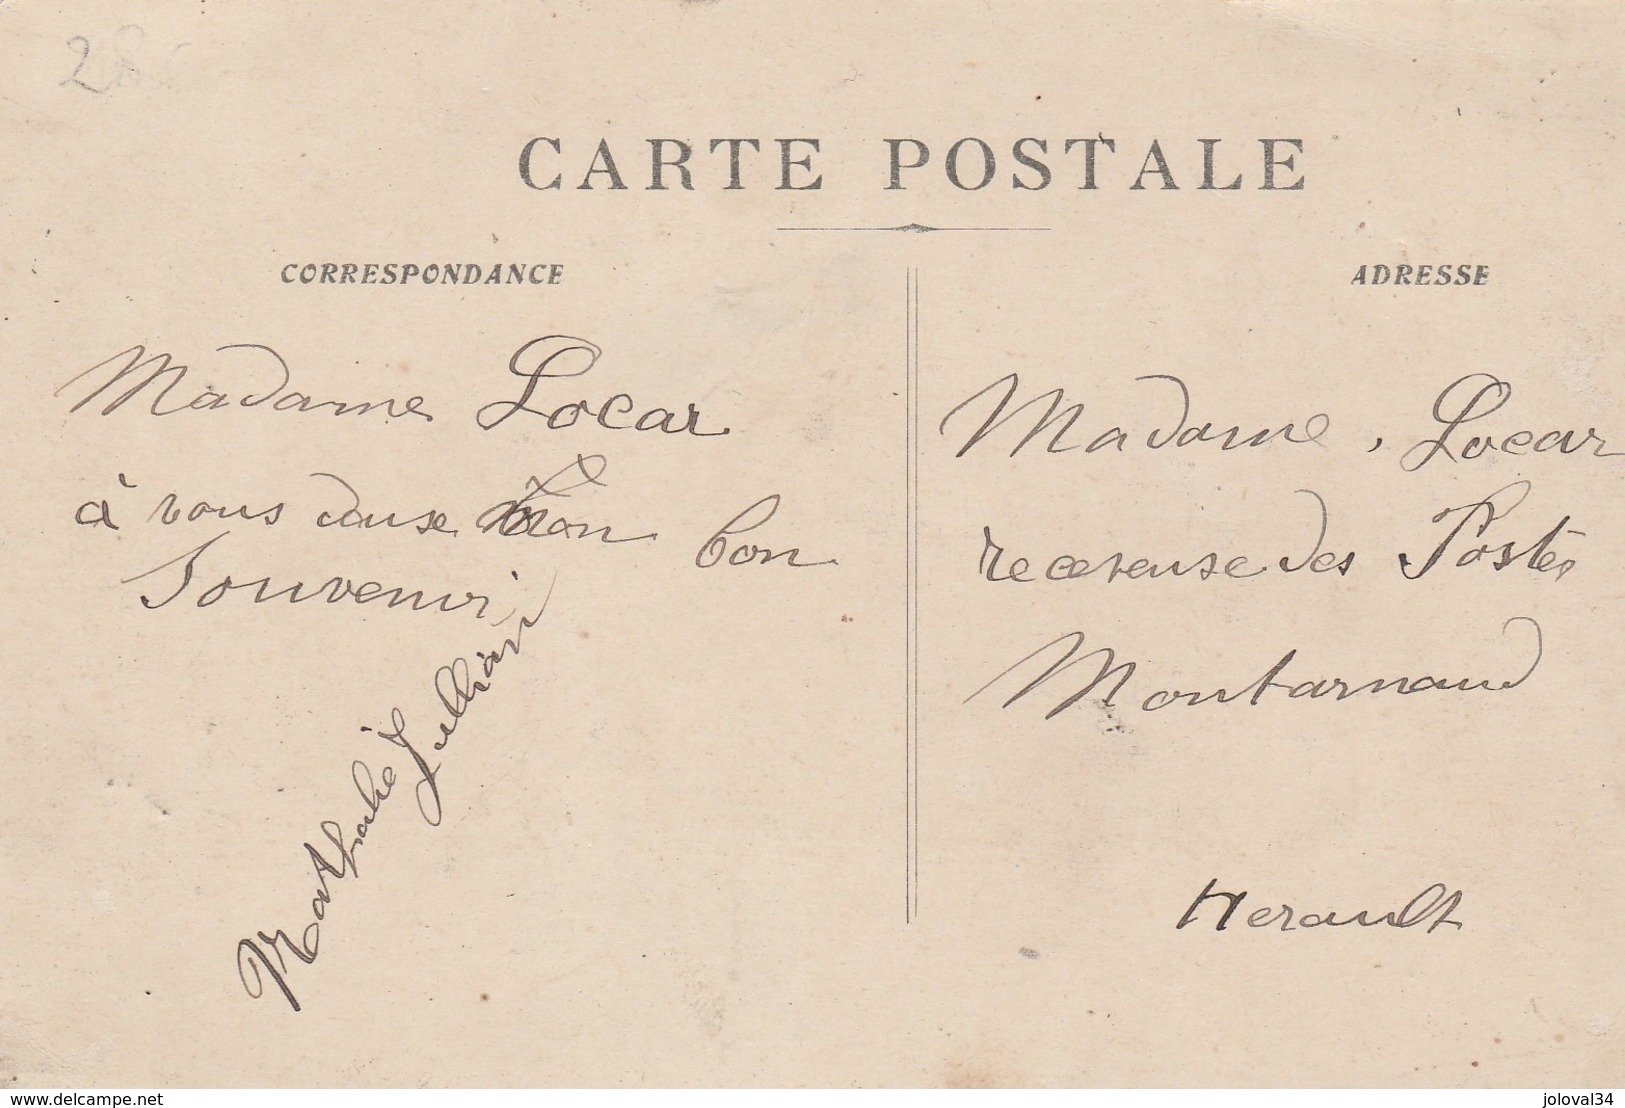 CARTE POSTALE
CORRESPONDANCE
Madame Locar
à vous deux bon
Souvenir
Mathilde Jullian
ADRESSE
Madame, Locar
receveuse des Postes
Montarnaud
Herault
www.delcampe.net
joloval34